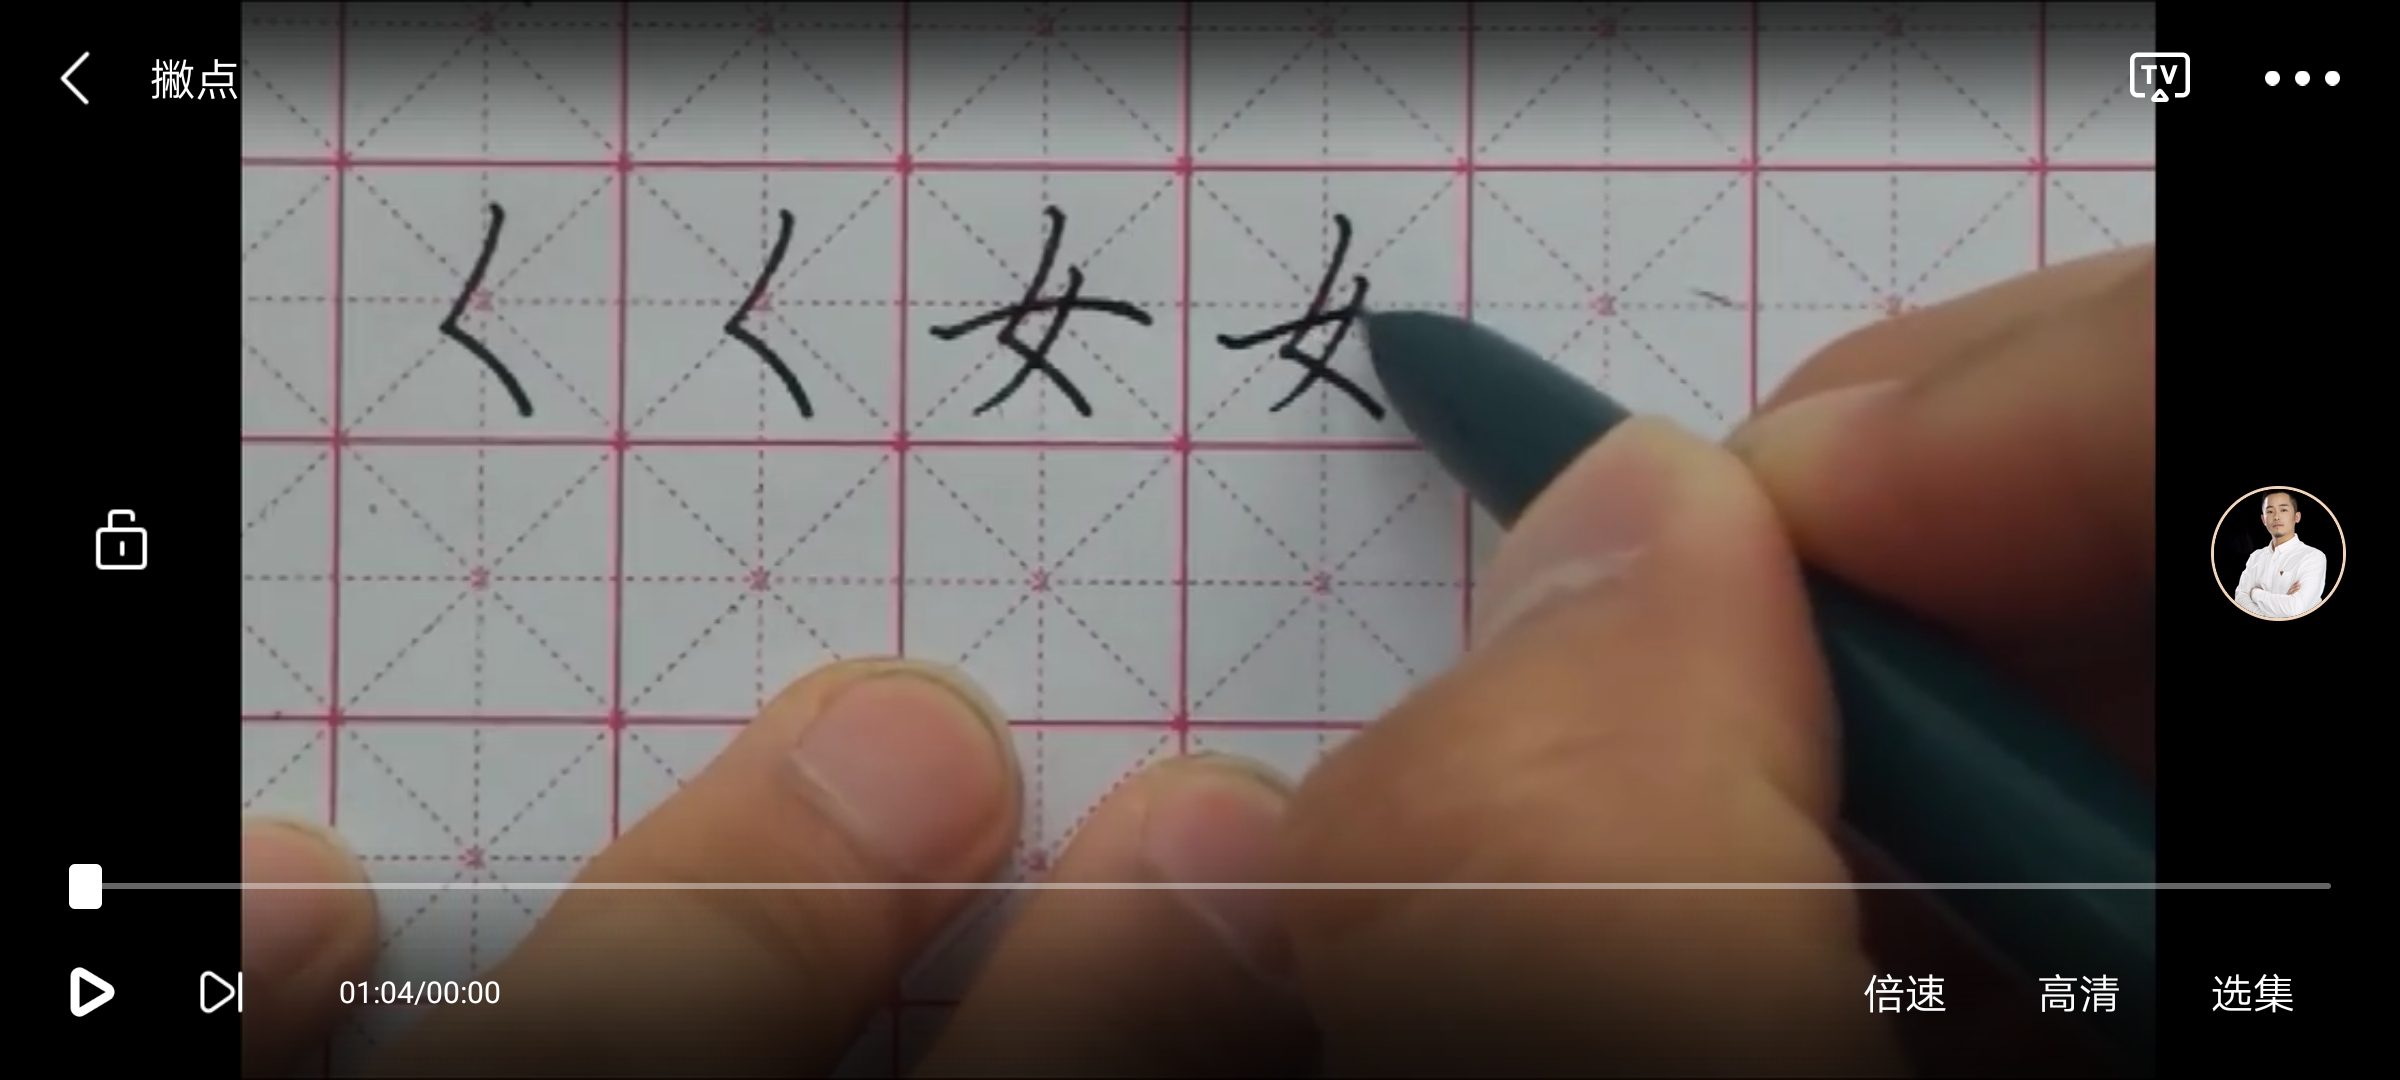 撇点
TV
く く 女 女
01:04/00:00
倍速 高清 选集